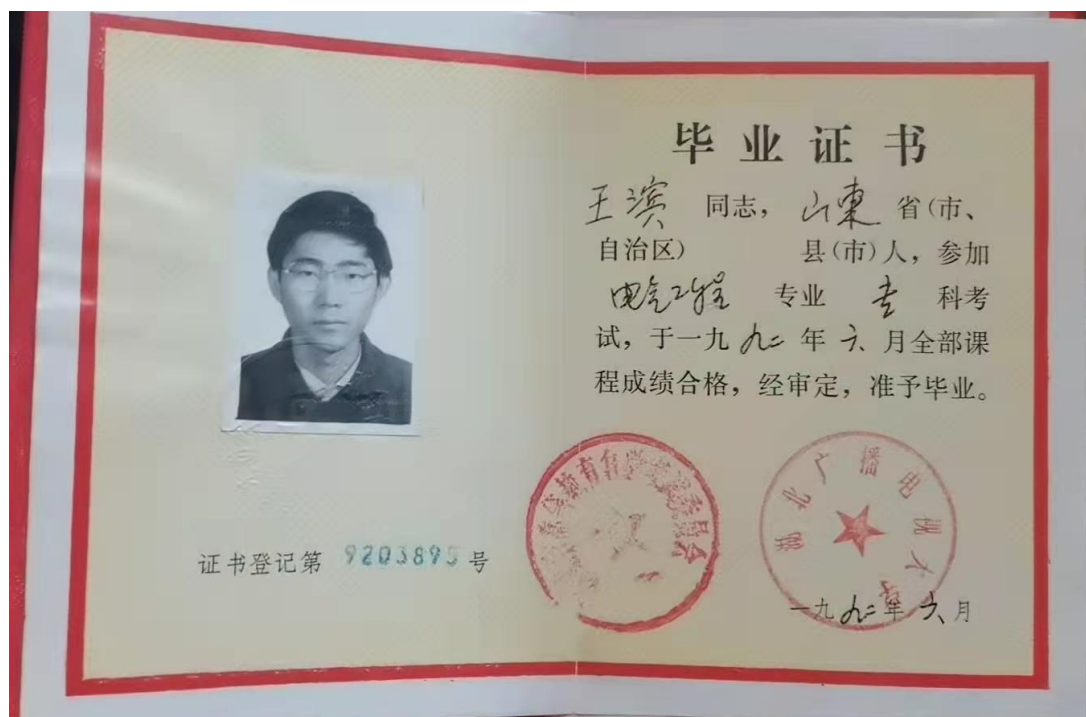 毕业证书
王滨 同志，山東省（市、
自治区） 县（市）人，参加
电气工程 专业 专 科考
试，于一九九二年六月全部课
程成绩合格，经审定，准予毕业。
证书登记第 9203895 号
湖北广播电视大学
一九九二年六月